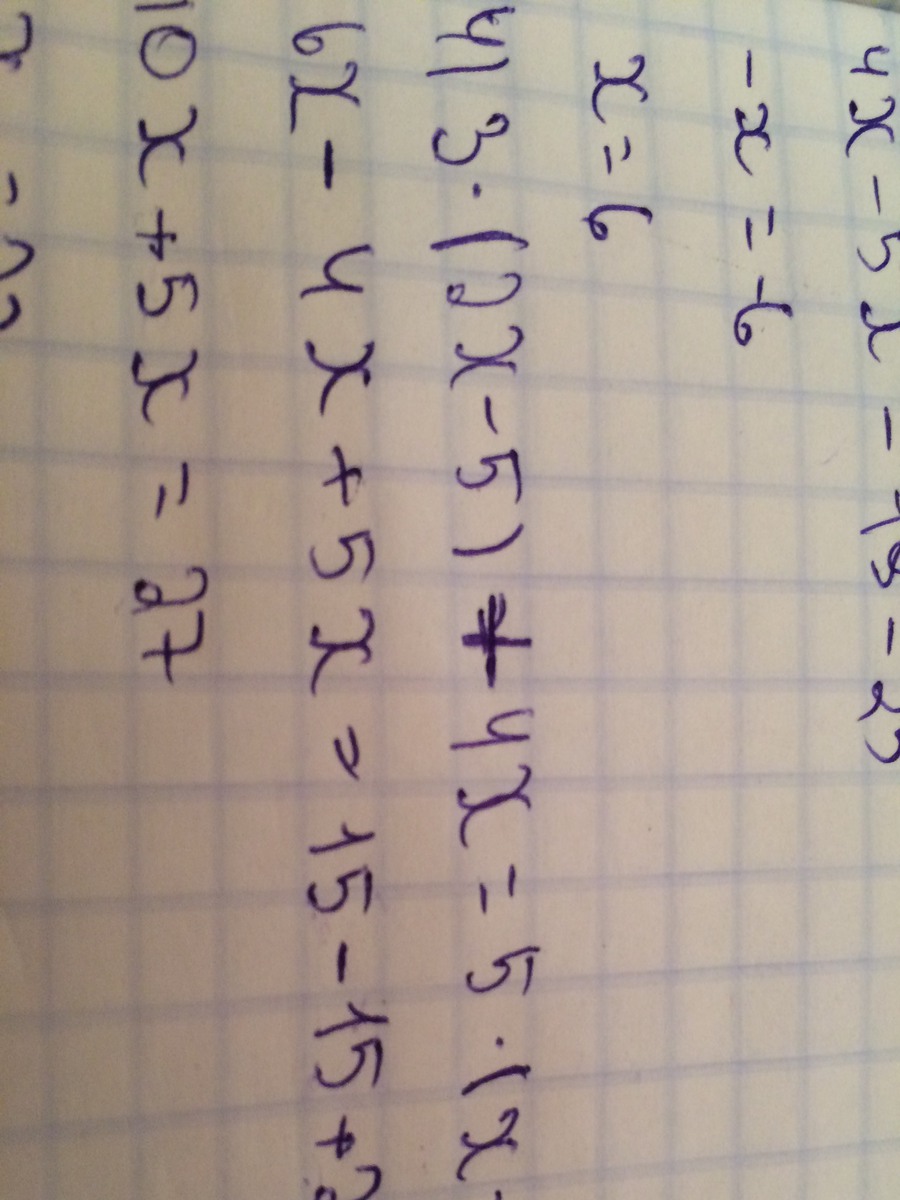 4x - 5x = 19 - 25
-x = -6
x = 6
4) 3 · (2x - 5) + 4x = 5 · (x -
6x - 4x + 5x = 15 - 15 + 2
10x + 5x = 27